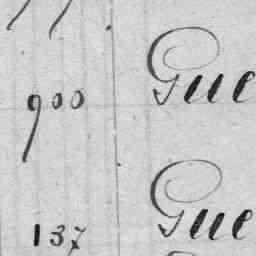 900 Gue
137 Gue